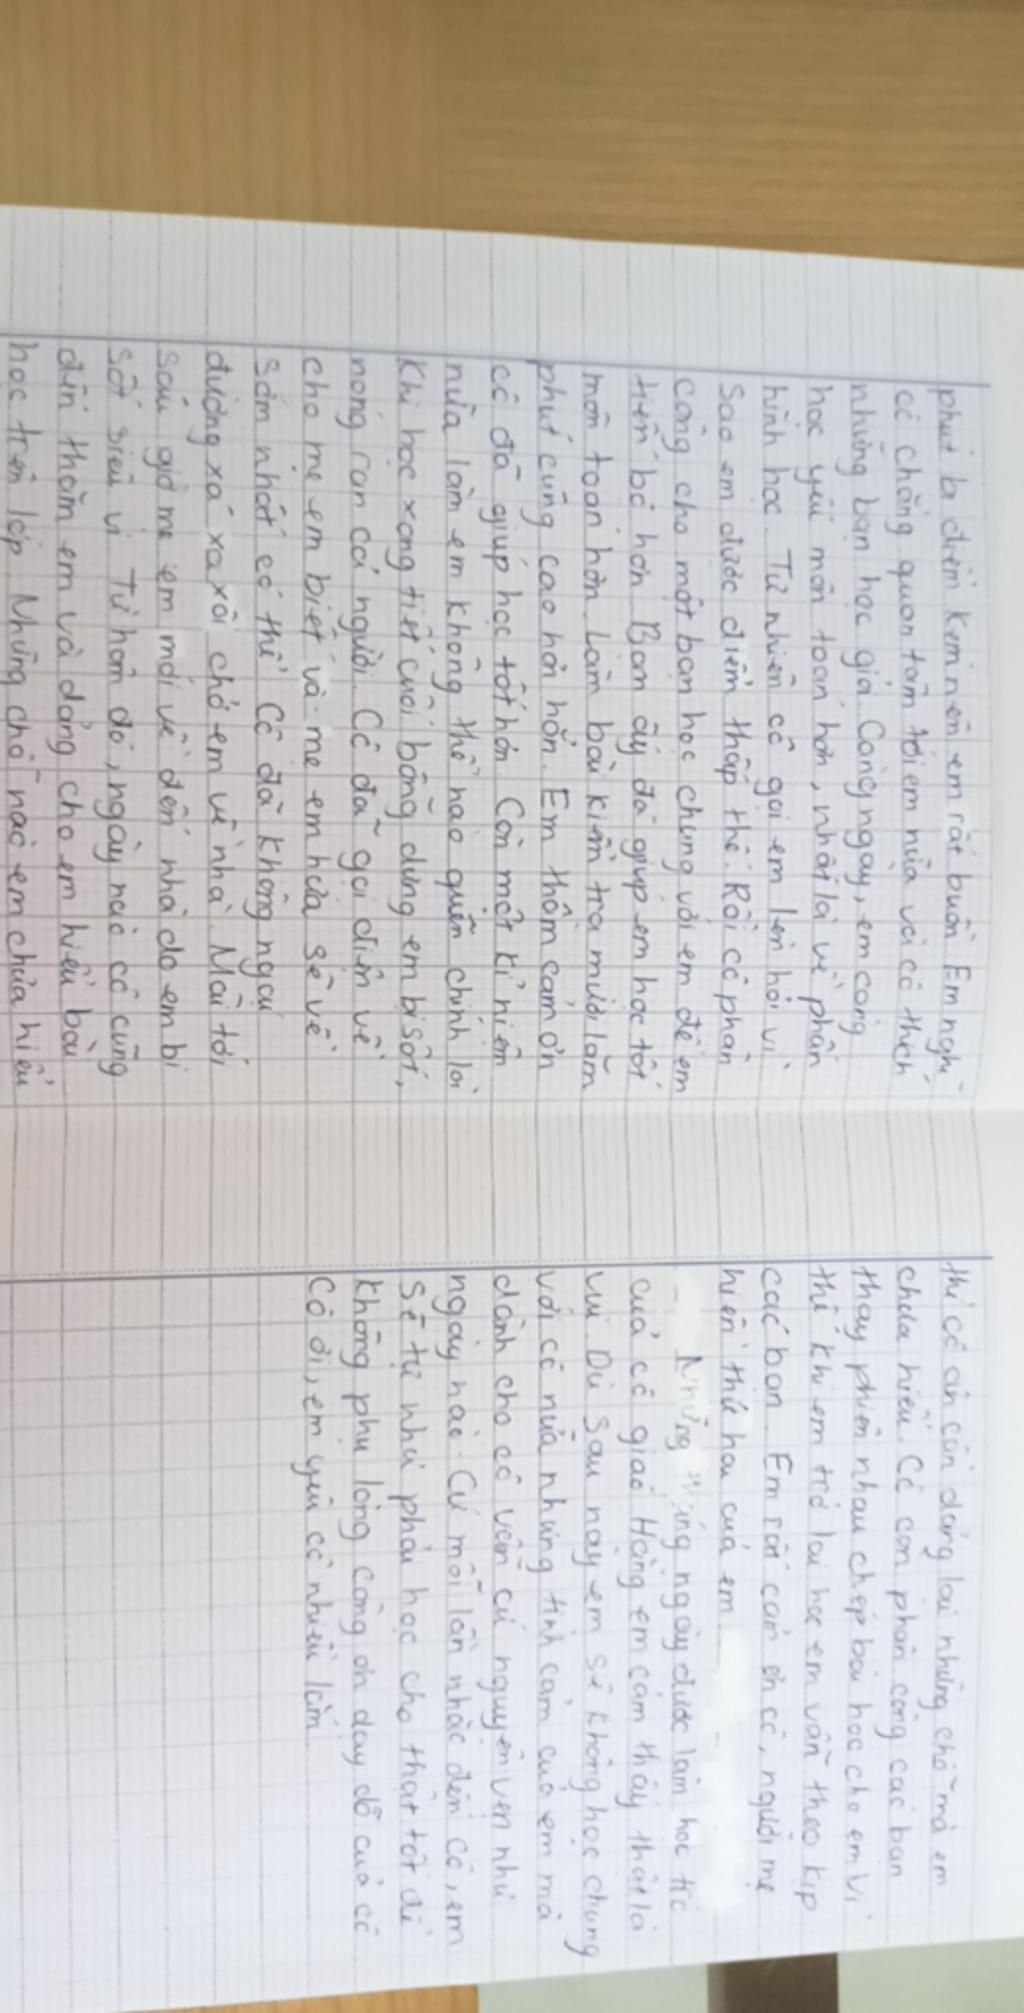 phút là điểm kém nên em rất buồn. Em nghĩ
cô chẳng quan tâm tới em nữa vì cô thích
những bạn học giỏi. Càng ngày, em càng
học yếu môn toán hơn, nhất là về phần
hình học. Tự nhiên cô gọi em lên hỏi vì
sao em được điểm thấp thế. Rồi cô phân
công cho một bạn học chung với em để em
tiến bộ hơn. Bạn ấy đã giúp em học tốt
môn toán hơn. Làm bài kiểm tra mười lăm
phút cũng cao hơn hẳn. Em thầm cảm ơn
cô đã giúp học tốt hơn. Còn một kỉ niệm
nữa làm em không thể nào quên chính là
khi học xong tiết cuối bỗng dưng em bị sốt,
nóng ran cả người. Cô đã gọi điện về
cho mẹ em biết và mẹ em hứa sẽ về
sớm nhất có thể. Cô đã không ngại
đường xá xa xôi chở em về nhà. Mãi tới
sáu giờ mẹ em mới về đến nhà do em bị
sốt siêu vi. Từ hôm đó, ngày nào cô cũng
đến thăm em và dảng cho em hiểu bài
học trên lớp. Những chỗ nào em chưa hiểu
thì cô ân cần dảng lại những chỗ mà em
chưa hiểu. Cô còn phân công các bạn
thay phiên nhau chép bài học cho em vì
thế khi em trở lại học em vẫn theo kịp
các bạn. Em rất cảm ơn cô, người mẹ
hiền thứ hai của em.
Những tháng ngày được làm học trò
của cô giáo Hằng em cảm thấy thật là
vui. Dù sau này em sẽ không học chung
với cô nữa nhưng tình cảm của em mà
dành cho cô vẫn cứ nguyên vẹn như
ngày nào. Cứ mỗi lần nhắc đến cô, em
sẽ tự nhủ phải học cho thật tốt để
không phụ lòng công ơn dạy dỗ của cô
Cô ơi, em yêu cô nhiều lắm.